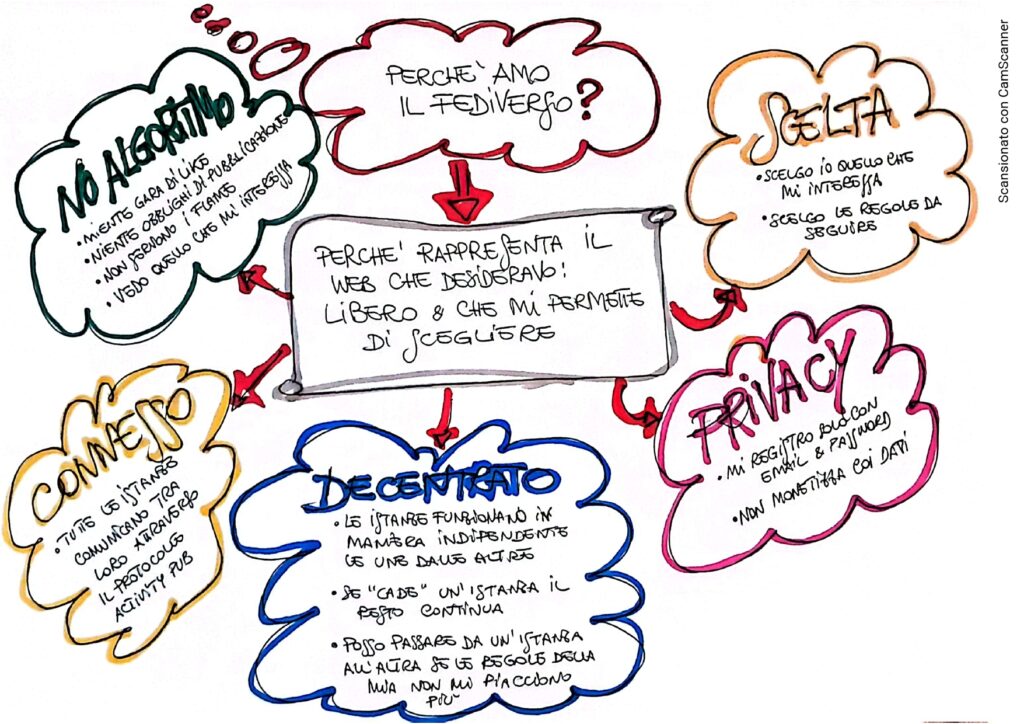 PERCHE' AMO
IL FEDIVERSO?
PERCHE' RAPPRESENTA IL
WEB CHE DESIDERAVO:
LIBERO & CHE MI PERMETTE
DI SCEGLIERE
NO ALGORITMO
• NIENTE GARA DI LIKE
• NIENTE OBBLIGHI DI PUBBLICAZIONE
• NON SERVONO I FLAME
• VEDO QUELLO CHE MI INTERESSA
SCELTA
• SCELGO IO QUELLO CHE
MI INTERESSA
• SCELGO LE REGOLE DA
SEGUIRE
CONNESSO
• TUTTE LE ISTANZE
COMUNICANO TRA
LORO ATTRAVERSO
IL PROTOCOLLO
ACTIVITY PUB
DECENTRATO
• LE ISTANZE FUNZIONANO IN
MANIERA INDIPENDENTE
LE UNE DALLE ALTRE
• SE "CADE" UN'ISTANZA IL
RESTO CONTINUA
• POSSO PASSARE DA UN'ISTANZA
ALL'ALTRA SE LE REGOLE DELLA
MIA NON MI PIACCIONO
PIÙ
PRIVACY
• MI REGISTRO SOLO CON
EMAIL & PASSWORD
• NON MONETIZZA COI DATI
Scansionato con CamScanner